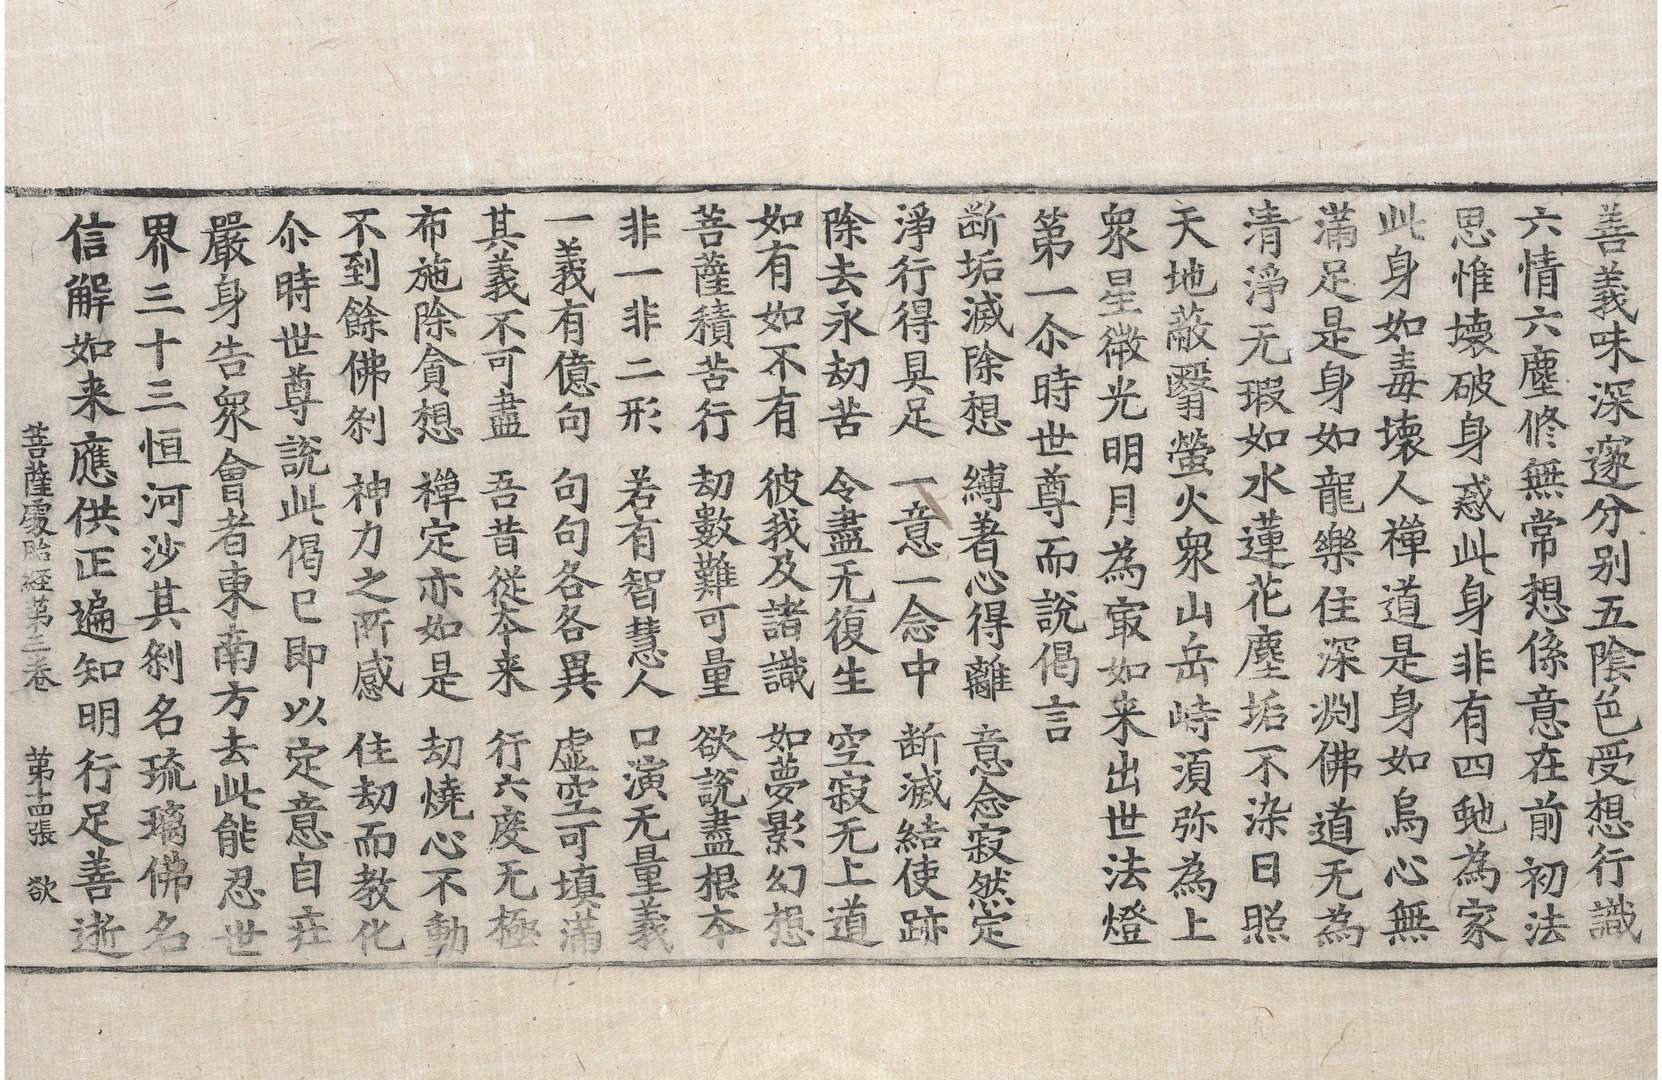 善義味深邃分别五陰色受想行識
六情六塵修無常想係意在前初法
思惟壊破身惑此身非有四虵為家
此身如毒壊人禅道是身如烏心無
滿足是身如龍樂住深渕佛道无為
清淨无瑕如水蓮花塵垢不染日照
天地蔽翳螢火衆山岳峙湏弥為上
衆星微光明月為㝡如来出世法燈
第一尒時世尊而說偈言
断垢滅除想 縛著心得離 意念寂然定
淨行得具足 一意一念中 断滅結使跡
除去永劫苦 令盡无復生 空寂无上道
如有如不有 彼我及諸識 如夢影幻想
菩薩積苦行 劫數難可量 欲說盡根本
非一非二形 若有智慧人 口演无量義
一義有億句 句句各各異 虚空可填滿
其義不可盡 吾昔從本来 行六度无極
布施除貪想 禅定亦如是 劫燒心不動
不到餘佛刹 神力之所感 住劫而教化
尒時世尊說此偈已即以定意自疰
嚴身告衆會者東南方去此能忍世
界三十三恒河沙其刹名琉璃佛名
信解如来應供正遍知明行足善逝
菩薩處胎經第三卷 第十四張 欲